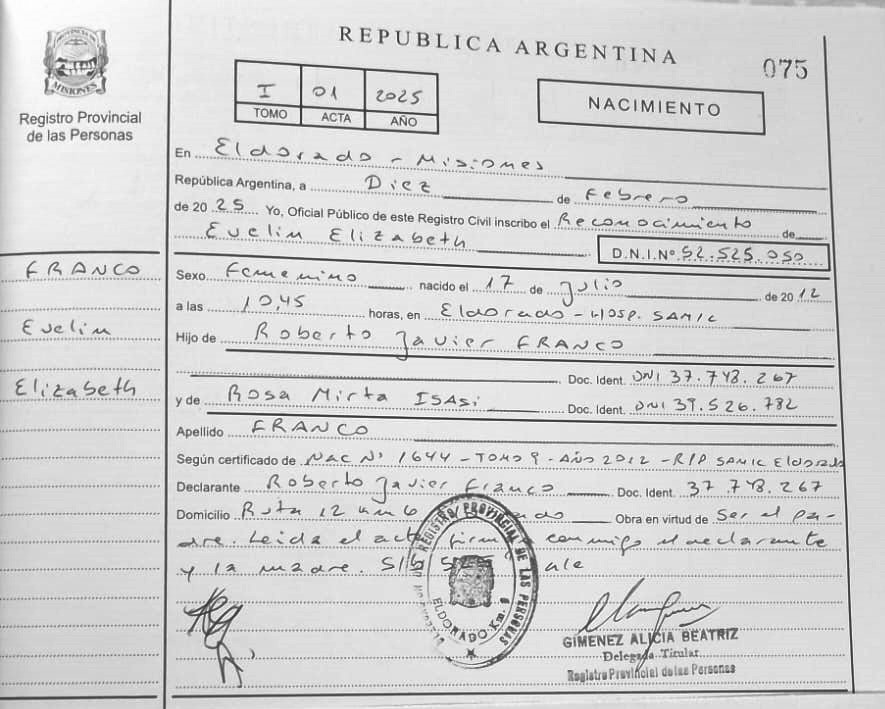 PROVINCIA DE
MISIONES
Registro Provincial
de las Personas
REPUBLICA ARGENTINA
075
I 01 2025
TOMO ACTA AÑO
NACIMIENTO
En Eldorado - Misiones
República Argentina, a Diez de Febrero
de 2025 Yo, Oficial Público de este Registro Civil inscribo el Reconocimiento de
Evelin Elizabeth D.N.I.Nº 52.525.050
FRANCO
Evelin
Elizabeth
Sexo Femenino nacido el 17 de Julio de 2012
a las 10,45 horas, en Eldorado - Hosp. SAMIC
Hijo de Roberto Javier FRANCO
Doc. Ident. DNI 37.748.267
y de Rosa Mirta ISASI Doc. Ident. DNI 39.526.782
Apellido FRANCO
Según certificado de NAC Nº 1644 - TOMO 9 - AÑO 2012 - R/P SAMIC Eldorado
Declarante Roberto Javier Franco Doc. Ident. 37.748.267
Domicilio Ruta 12 km 6 Obra en virtud de Ser el pa-
dre. Leida el acta firma conmigo el declarante
y la madre. S/b 525 vale
REGISTRO PROVINCIAL DE LAS PERSONAS
ELDORADO Km. 9
GIMENEZ ALICIA BEATRIZ
Delegada Titular
Registro Provincial de las Personas